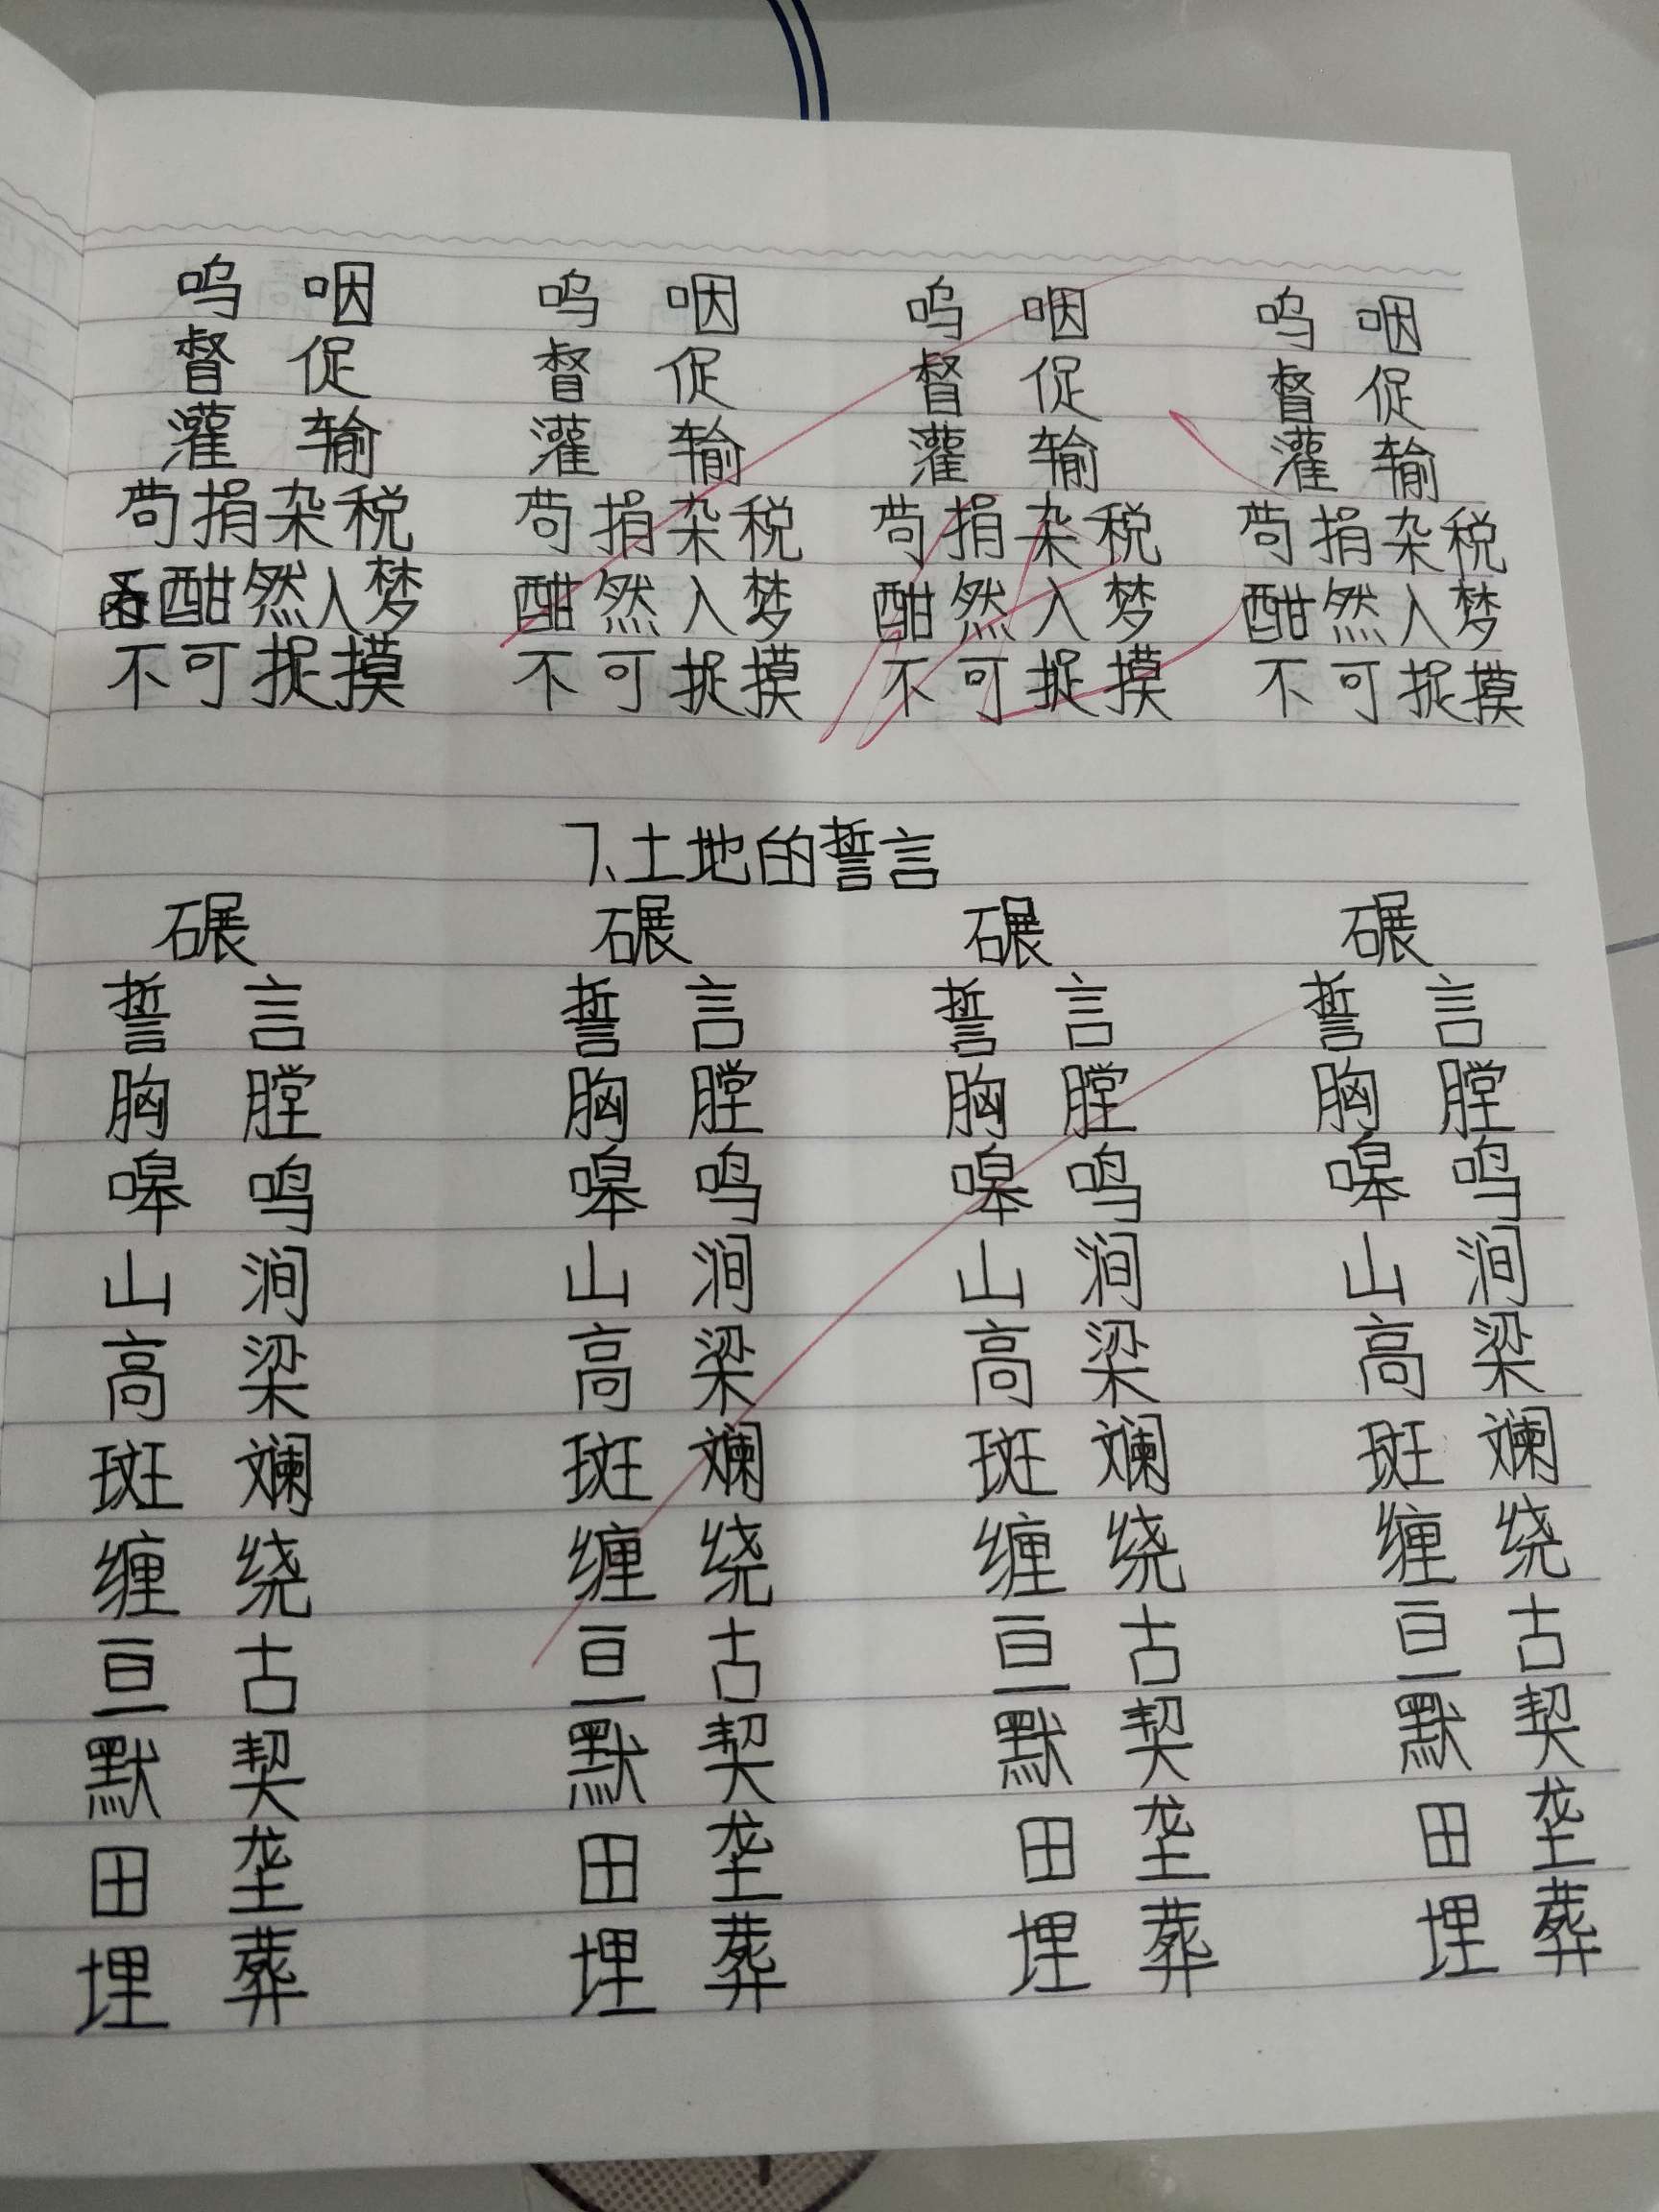 呜咽 呜咽 呜咽 呜咽
督促 督促 督促 督促
灌输 灌输 灌输 灌输
苛捐杂税 苛捐杂税 苛捐杂税 苛捐杂税
酣然入梦 酣然入梦 酣然入梦 酣然入梦
不可捉摸 不可捉摸 不可捉摸 不可捉摸
7、土地的誓言
碾 碾 碾 碾
誓言 誓言 誓言 誓言
胸膛 胸膛 胸膛 胸膛
嗥鸣 嗥鸣 嗥鸣 嗥鸣
山涧 山涧 山涧 山涧
高梁 高梁 高梁 高梁
斑斓 斑斓 斑斓 斑斓
缠绕 缠绕 缠绕 缠绕
亘古 亘古 亘古 亘古
默契 默契 默契 默契
田垄 田垄 田垄 田垄
埋葬 埋葬 埋葬 埋葬